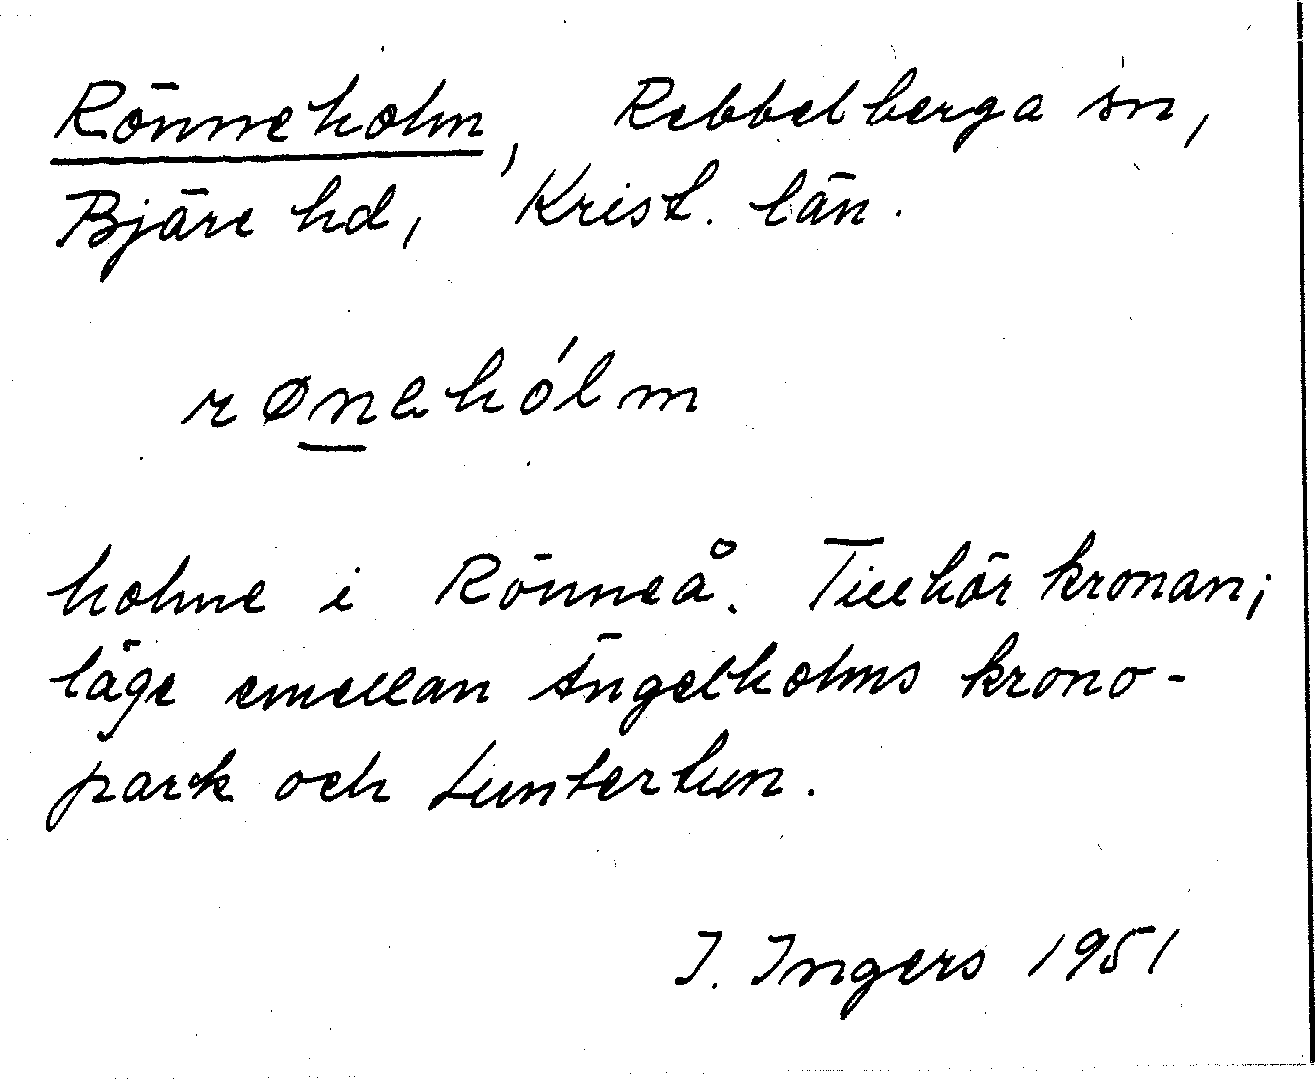 Rönneholm, Rebbelberga sn,
Bjäre hd, Krist. län.
røn̲ehólm
holme i Rönneå. Tillhör kronan;
läge emellan Ängelholms krono-
park och Luntertun.
I. Ingers 1951